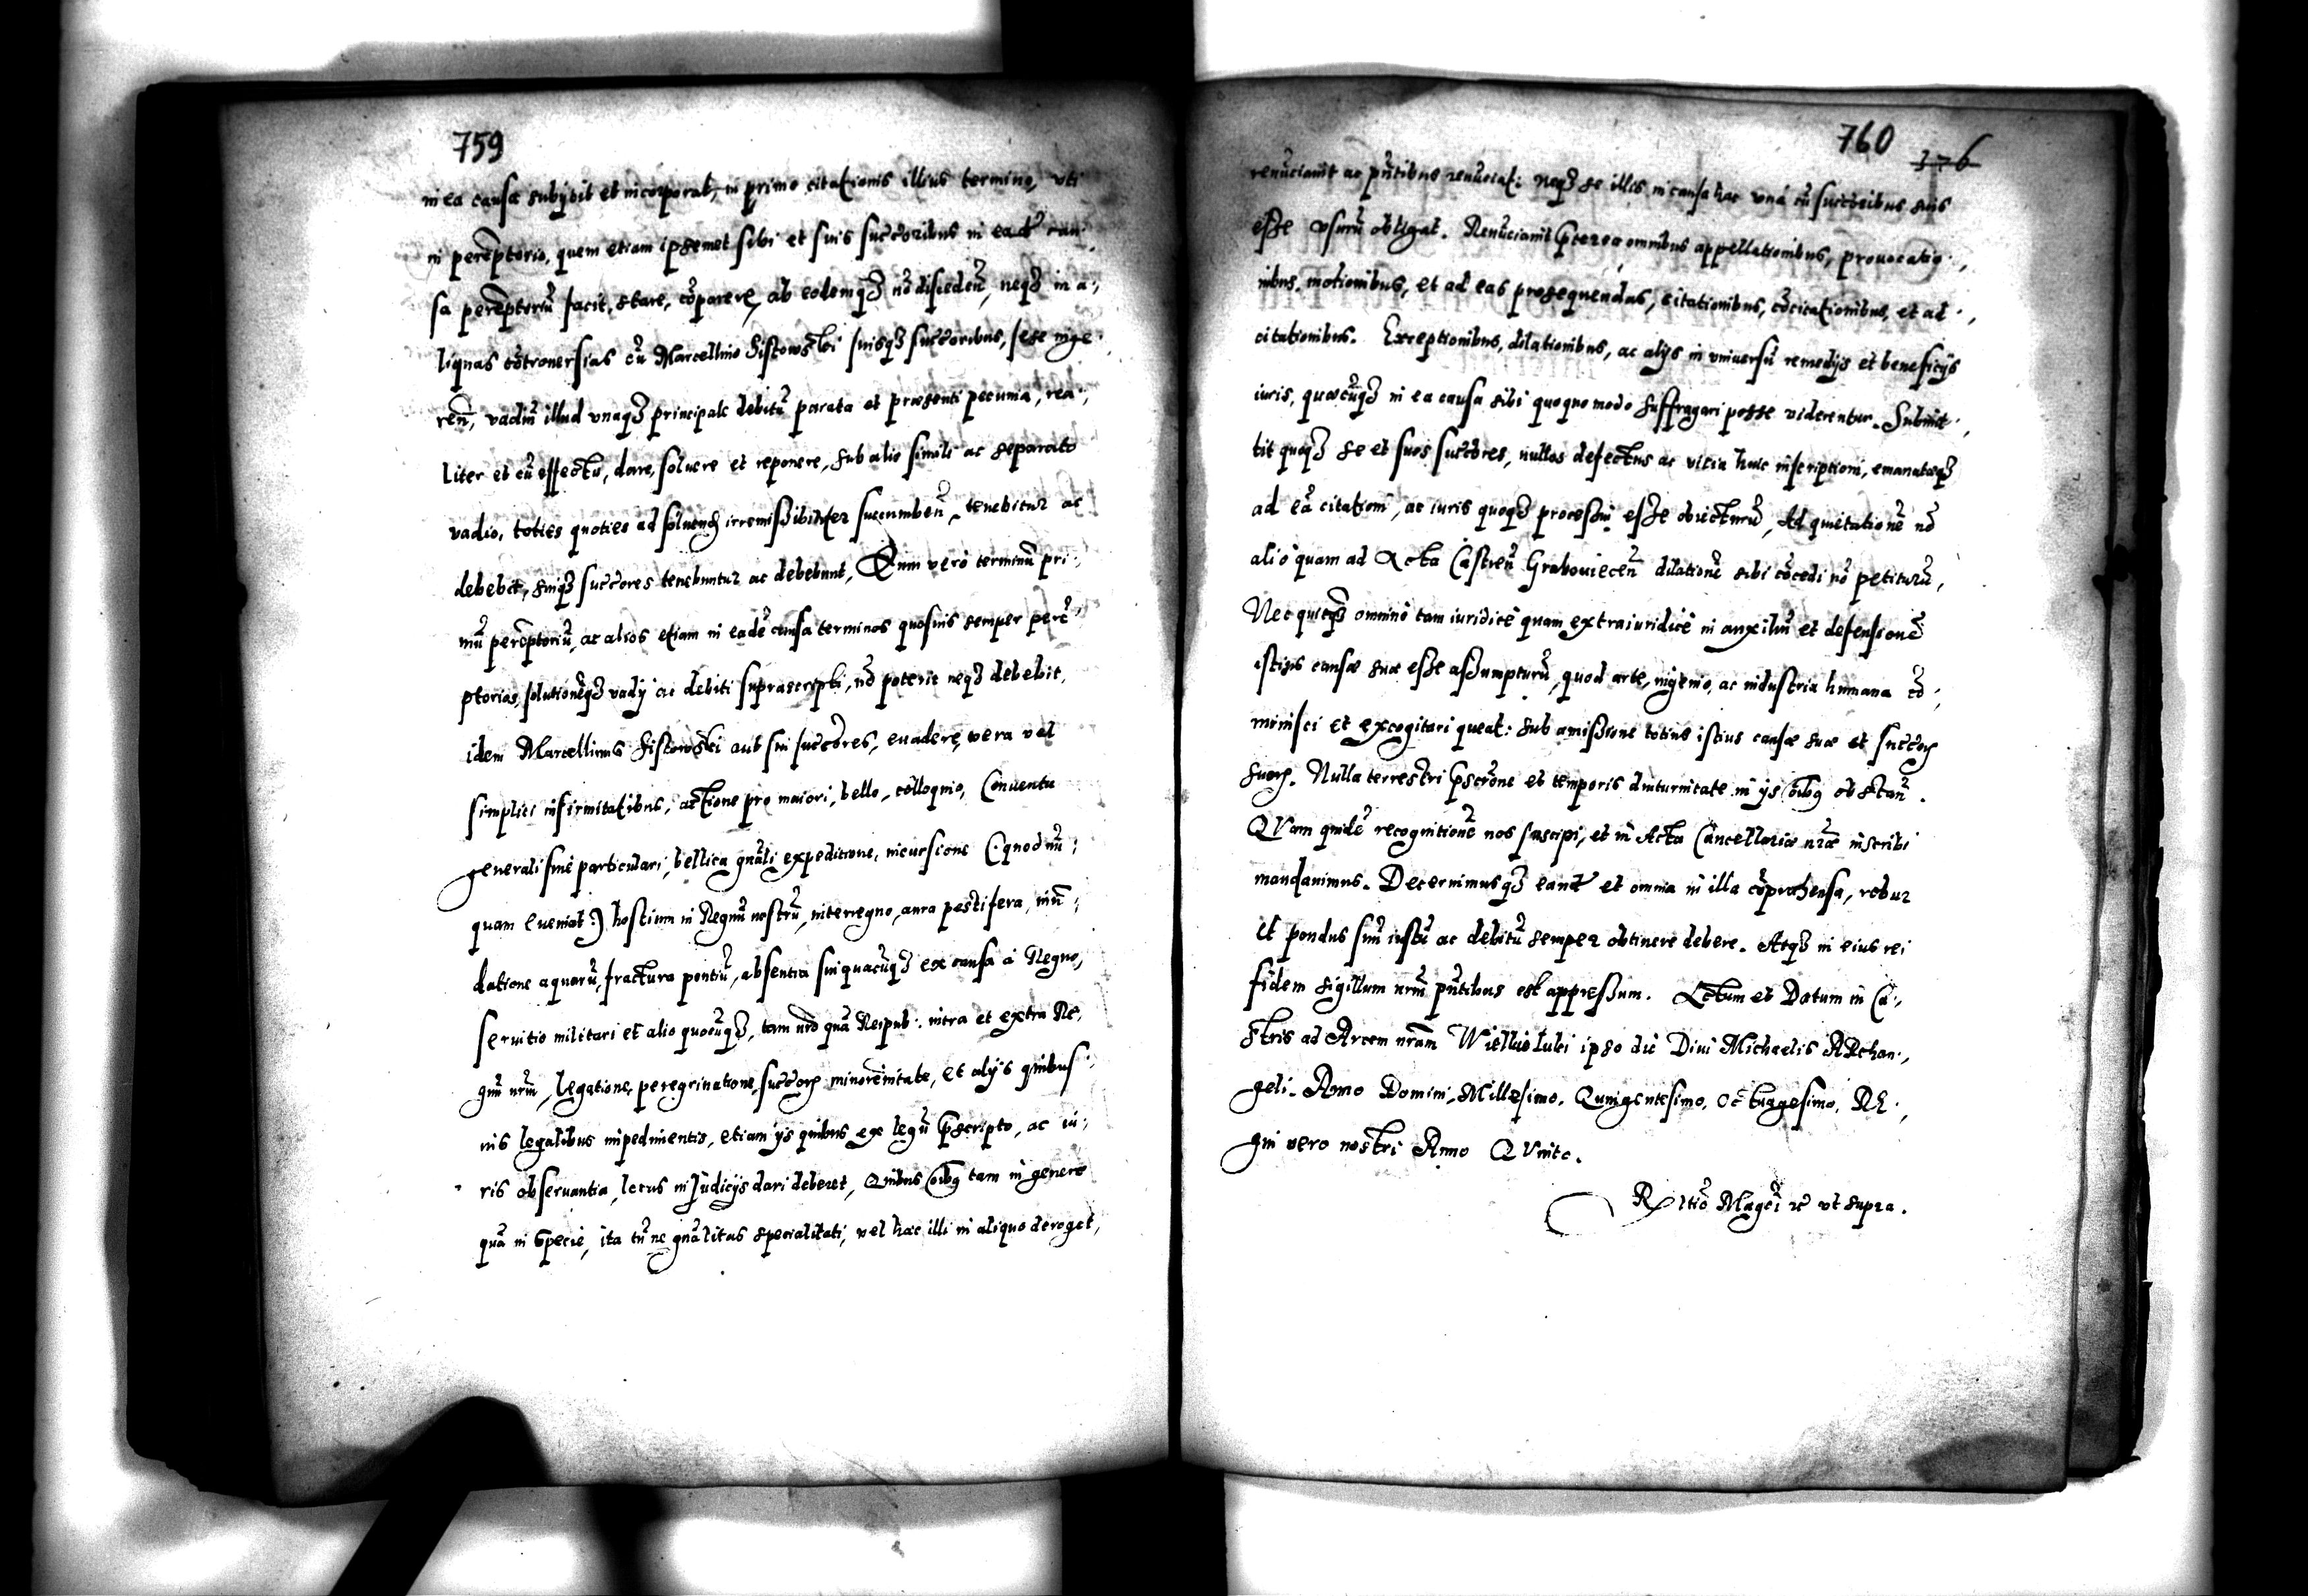 759
in ea causa subijbit et incorporat, in primo citationis illius termino, vti
in perẽptorio, quem etiam ipsemet sibi et suis succoribus in ead' cau:,
sa perẽptoriũ facit, stare, cõparere, ab eodemq3 nõ discedeñ, neq3 in a:,
liquas cõtrouersias cũ Marcellino Sistowski suisq3 succoribus, sese inge:,
reñ, vadiũ illud vnaq3 principale debitũ parata et præsenti pecunia, rea:,
liter et cũ effectu, dare, soluere et reponere, sub alio simili ac separato
vadio, toties quoties ad soluend irremissibiliter succumbeñ, tenebitur ac
debebit, suiq3 succores tenebuntur ac debebunt, Quem vero terminũ pri:,
mũ perẽptoriũ, ac alios etiam in eadẽ causa terminos quosuis semper perẽ:,
ptorios, solutionẽq3 vadij ac debiti suprascripti, nõ poterit neq3 debebit,
idem Marcellinus Sistowski aut sui succores, euadere, vera vel
simplici infirmitatibus, actione pro maiori, bello, colloquio, Conuentu
generali siue particulari, bellica gnãli expeditione, incursione (: quod nũ:,
quam eueniat :) hostium in Regnũ nostrũ, interregno, aura pestifera, inũ:,
datione aquarũ, fractura pontiũ, absentia sui quacũq3 ex causa à Regno,
seruitio militari et alio quocũq3, tam nrõ quã Reipub: intra et extra Re,
gnũ nrũm, legatione, peregrinatione, succorũ minorẽnitate, et alijs quibus:,
uis legalibus impedimentis, etiam ijs quibus ex legũ p̃scripto, ac iu:,
ris obseruantia, locus in Judicijs dari deberet, Quibus oĩbq tam in genere
quã in specie, ita tñ ne gnãlitas specialitati, vel hæc illi in aliquo deroget,
760 376
renũciauit ac pñtibus renũciat: neq3 se illis in causa hac vnà cũ succoribus suis
esse vsurũ obligat. Renũciauit p̃terea omnibus appellationibus, prouocatio:,
nibus, motionibus, et ad eas prosequendas, citationibus, cõcitationibus, et ad:,
citationibus. Exceptionibus, dilationibus, ac alijs in vniuersũ remedijs et beneficijs
iuris, quæcũq3 in ea causa sibi quoquo modo suffragari posse viderentur. Submit:,
tit quoq3 se et suos succores, nullos defectus ac vitia huic inscriptioni, emanatæq3
ad eã citationi, ac iuris quoq3 processui esse obiecturũ, Ad quietationẽ nõ
alio quam ad Acta Castreñ Graboviecẽn dilationẽ sibi cõcedi nõ petiturũ,
Nec quicq3 omnino tam iuridicè quam extraiuridicè in auxiliũ et defensionẽ
istius causæ suæ esse assumpturũ, quod arte, ingenio, ac industria humana cõ:,
minisci et excogitari queat: sub amissione totius istius causæ suæ et succorũ
suorũ. Nulla terrestri p̃scrõne et temporis diuturnitate in ijs oĩbq obstañ.
QVam quidẽ recognitionẽ nos suscipi, et in Acta Cancellariæ nræ inscribi
mandauimus. Decernimusq3 eand' et omnia in illa cõprahensa, robur
et pondus suũ iustũ ac debitũ semper obtinere debere. Atq3 in eius rei
fidem sigillum nrũm pñtibus est appressum. Actum et Datum in Ca:,
stris ad Arcem nrãm Wielluoluki ipso die Diui Michaelis ARchan:,
geli. Anno Domini, Millesimo, Quingentesimo, Octuagesimo, RE:,
gni vero nostri Anno QVinto.
Rltiõ Magci ꝛc vt supra.